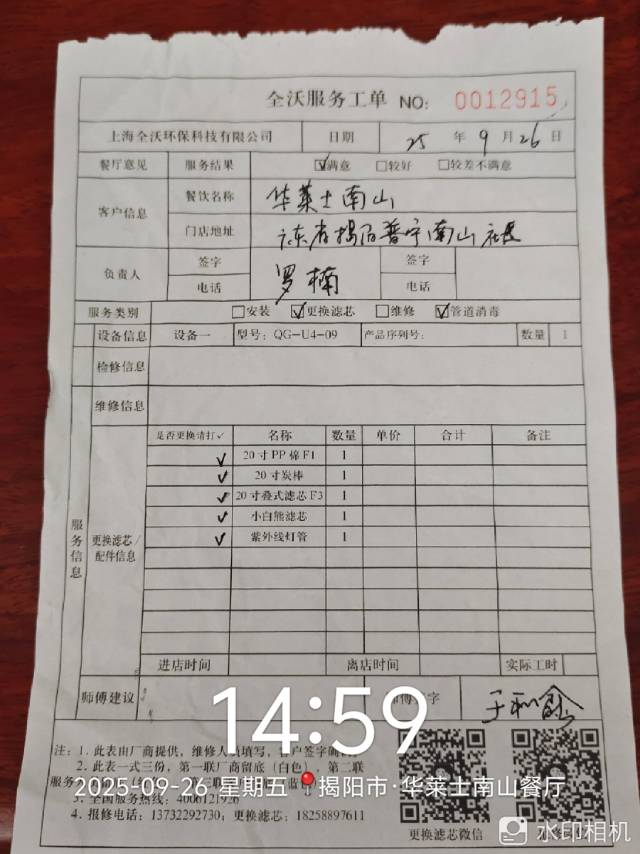 全沃服务工单 NO: 0012915
上海全沃环保科技有限公司 日期 25 年 9 月 26 日
餐厅意见 服务结果 ☑满意 □较好 □较差不满意
客户信息 餐饮名称 华莱士南山
门店地址 广东省揭阳普宁南山
负责人 签字 罗楠 签字
电话 电话
服务类别 □安装 ☑更换滤芯 □维修 ☑管道消毒
设备信息 设备一 型号: QG-U4-09 产品序列号: 数量 1
检修信息
维修信息
服务信息
更换滤芯/配件信息
是否更换请打✓ 名称 数量 单价 合计 备注
✓ 20寸PP棉F1 1
✓ 20寸炭棒 1
✓ 20寸叠式滤芯F3 1
✓ 小白熊滤芯 1
✓ 紫外线灯管 1
进店时间 离店时间 实际工时
师傅建议 师傅签字
14:59
注: 1.此表由厂商提供,维修人员填写,客户签字确
2.此表一式三份,第一联厂商留底(白色),第二联
服务
2025-09-26 星期五 揭阳市·华莱士南山餐厅
3.全国服务热线: 4006121926
4.报修电话: 13732292730; 更换滤芯: 18258897611
更换滤芯微信
水印相机